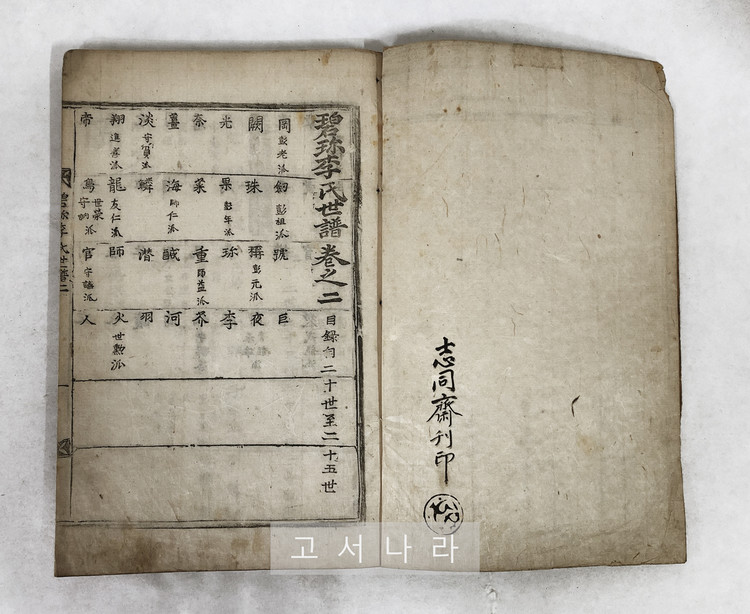 志同齋刊印
碧珎李氏世譜 卷之二
目錄自二十世至二十五世
岡 彭老派 釼 彭祖派 號 巨
闕 珠 稱 彭元派 夜
光 果 彭年派 珎 李
奈 菜 重 師益派 芥
薑 海 師仁派 鹹 河
淡 鱗 潜 羽
翔 進孝派 龍 友仁派 世榮派 師 火 世勲派
帝 鳥 守訥派 官 守謐派 人
碧珎李氏世譜二
고서나라